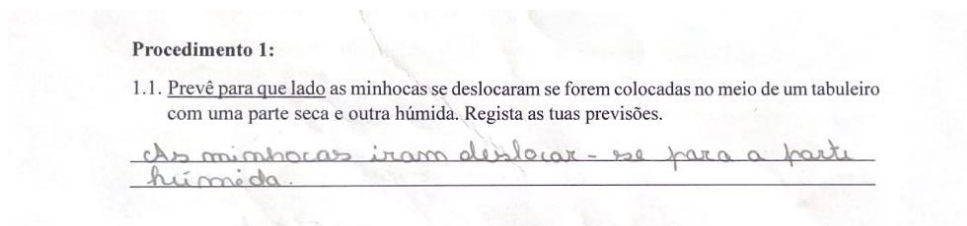 Procedimento 1:
1.1. Prevê para que lado as minhocas se deslocaram se forem colocadas no meio de um tabuleiro
com uma parte seca e outra húmida. Regista as tuas previsões.
As minhocas iram deslocar-se para a parte
húmida.